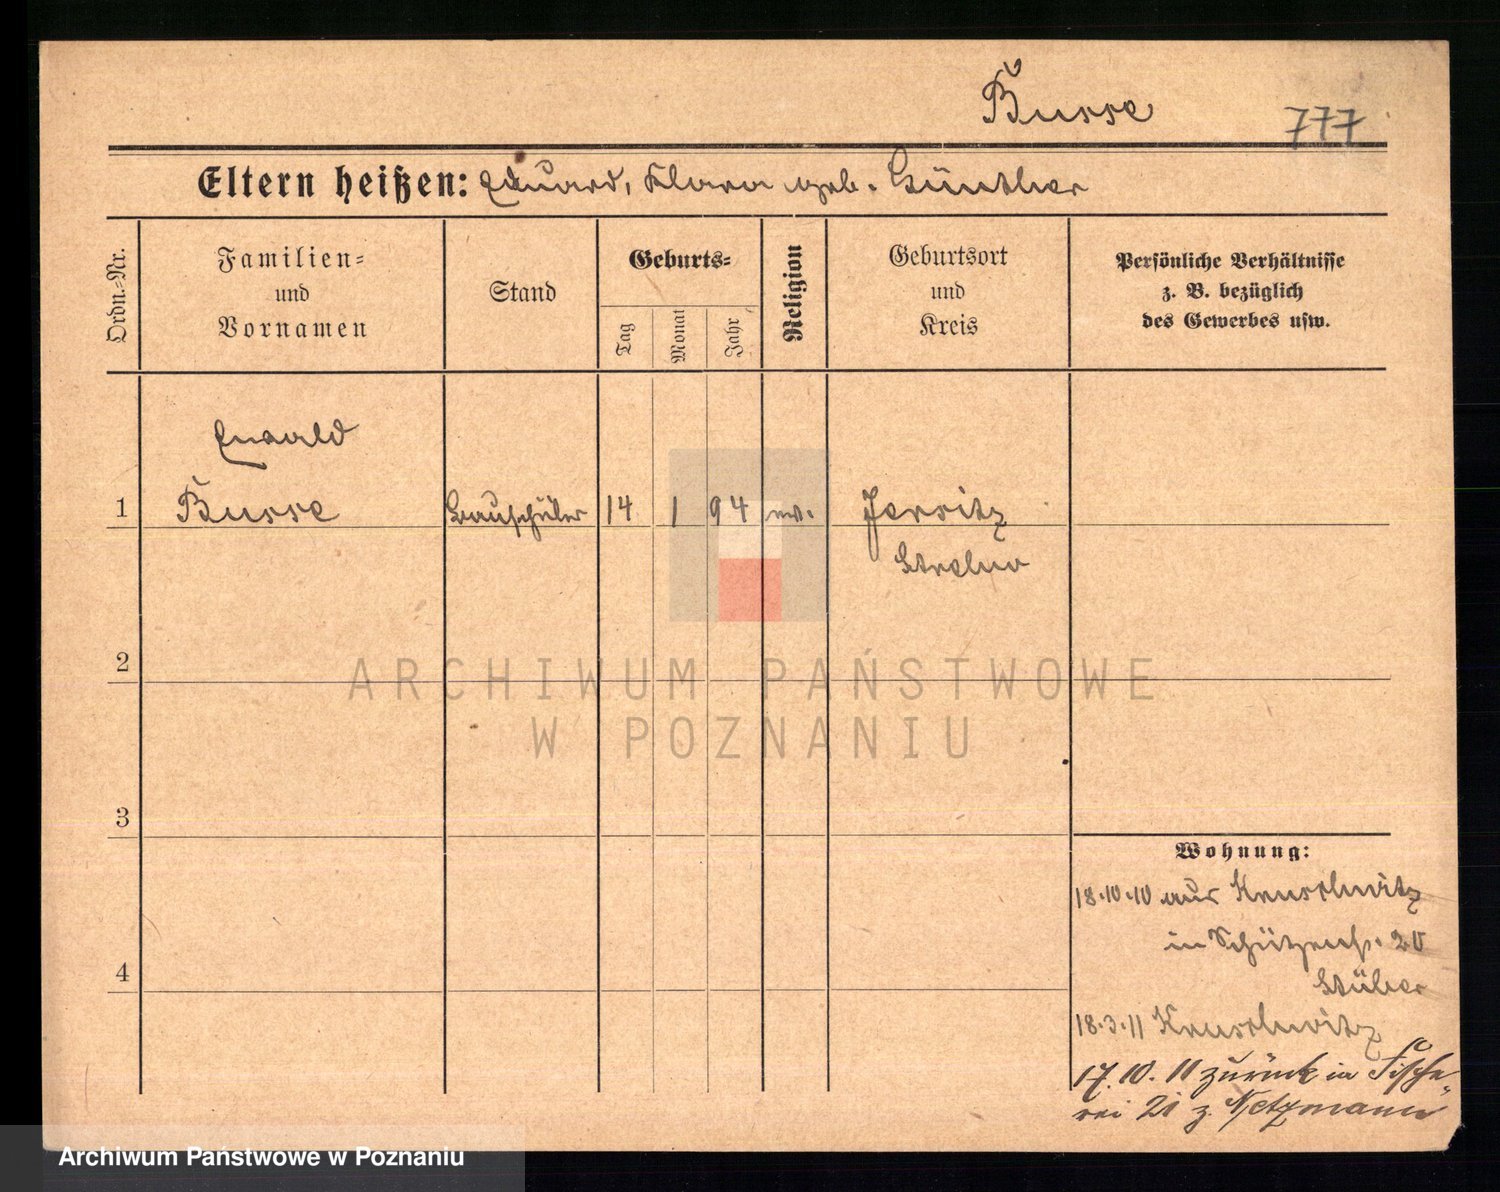 Busse
777
Eltern heißen: Eduard, Klara geb. Günther
Ordn.-Nr.
Familien-
und
Vornamen
Stand
Geburts-
Tag
Monat
Jahr
Religion
Geburtsort
und
Kreis
Persönliche Verhältnisse
z. B. bezüglich
des Gewerbes usw.
Ewald
1 Busse Bauschüler 14 1 94 ev.
Strelno
2
3
4
Wohnung:
18.10.10 aus Kruschwitz
in Schützenstr. 20
Stüber
18.3.11 Kruschwitz
17.10.11 zurück in Fische-
rei 21 z. Netzmann
ARCHIWUM PAŃSTWOWE
W POZNANIU
Archiwum Państwowe w Poznaniu